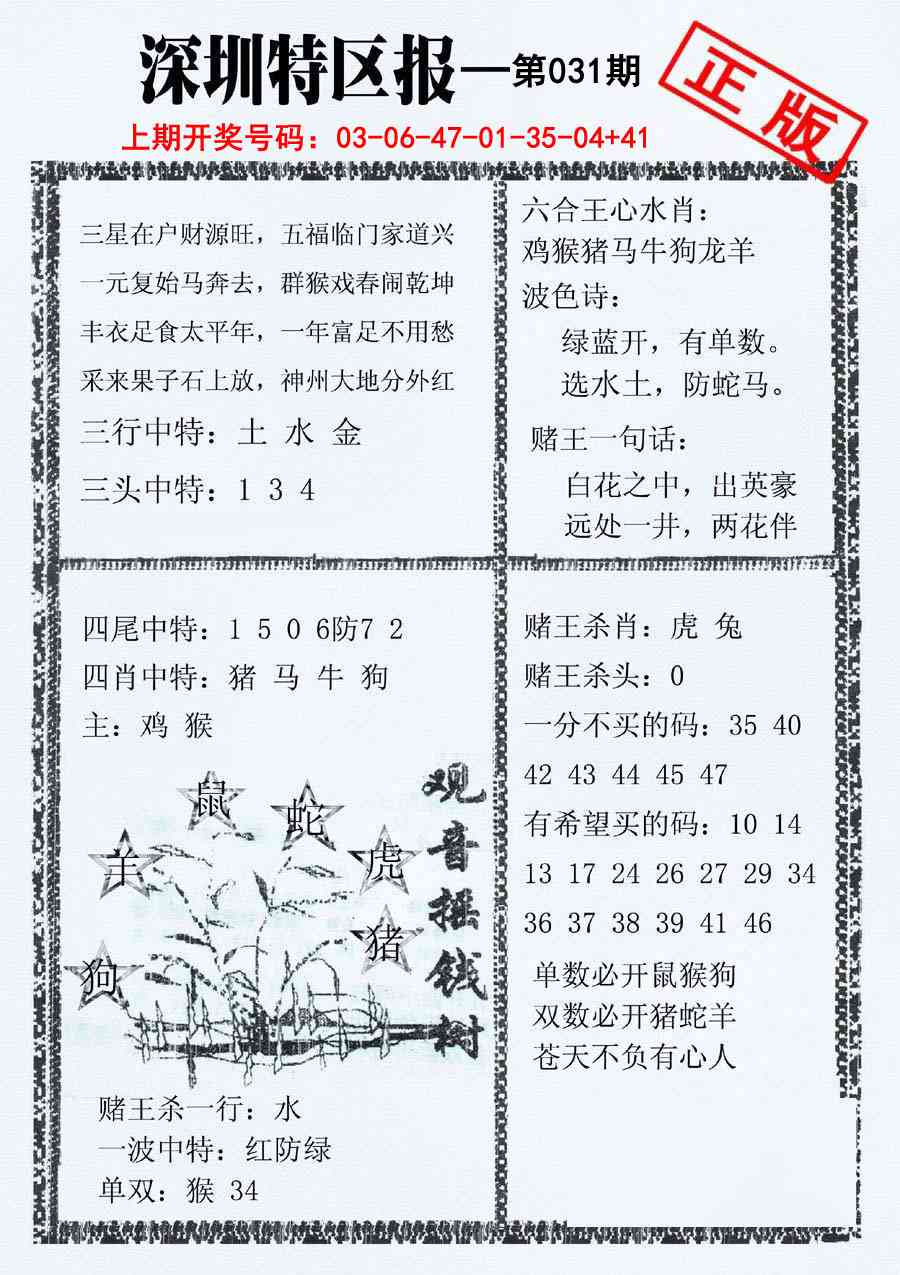 深圳特区报—第031期
正版
上期开奖号码：03-06-47-01-35-04+41
三星在户财源旺，五福临门家道兴
一元复始马奔去，群猴戏春闹乾坤
丰衣足食太平年，一年富足不用愁
采来果子石上放，神州大地分外红
三行中特：土 水 金
三头中特：1 3 4
六合王心水肖：
鸡猴猪马牛狗龙羊
波色诗：
绿蓝开，有单数。
选水土，防蛇马。
赌王一句话：
白花之中，出英豪
远处一井，两花伴
四尾中特：1 5 0 6防7 2
四肖中特：猪 马 牛 狗
主：鸡 猴
鼠
蛇
羊
虎
猪
狗
观音摇钱树
赌王杀一行：水
一波中特：红防绿
单双：猴 34
赌王杀肖：虎 兔
赌王杀头：0
一分不买的码：35 40
42 43 44 45 47
有希望买的码：10 14
13 17 24 26 27 29 34
36 37 38 39 41 46
单数必开鼠猴狗
双数必开猪蛇羊
苍天不负有心人